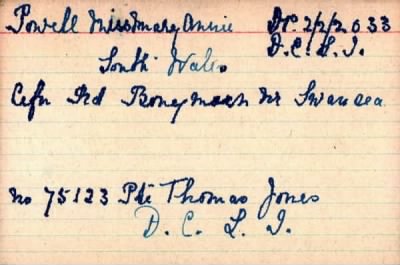 Powell Miss Mary Annie Dr. 2/2/2033
D.C.L.I.
South Wales
Cefn Rd Boneymaen Nr Swansea
No 75123 Pte Thomas Jones
D. C. L. I.